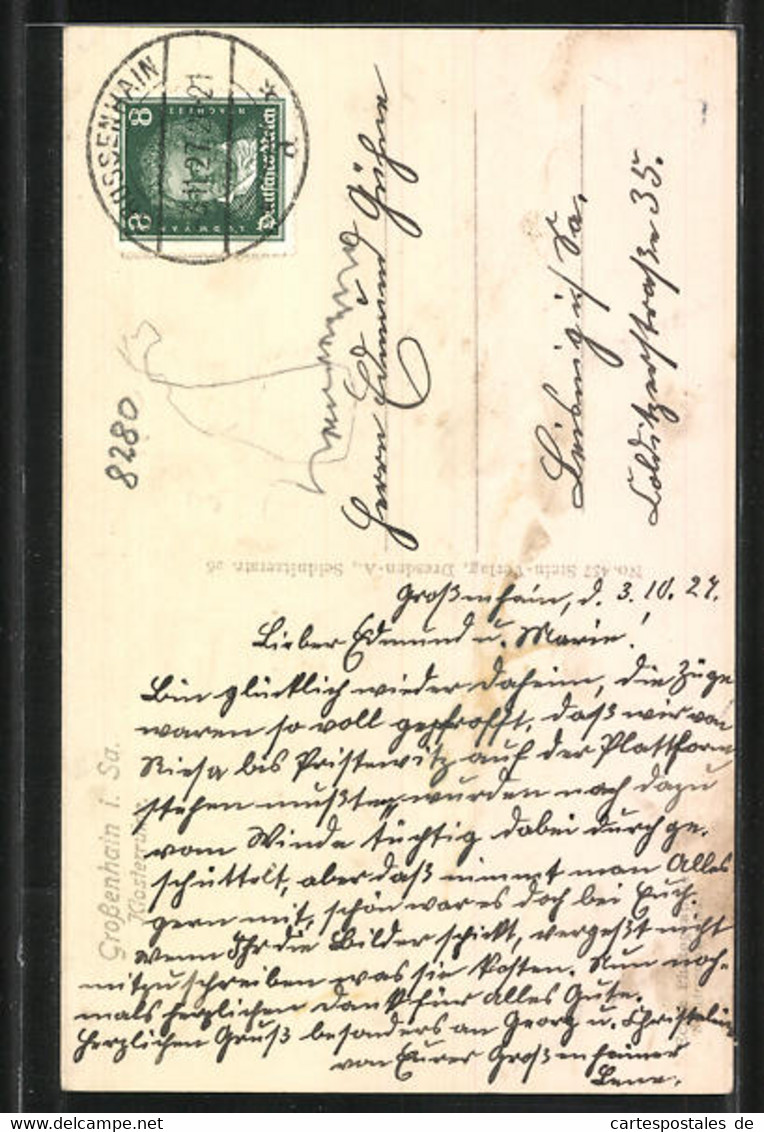 GROSSENHAIN
* d
3.11.27.
8 8
BEETHOVEN
Deutsches Reich
8280
Herrn Edmund Hühne
Leisnig i/ Sa.
Colditzerstraße 35.
No. 457 Stein-Verlag, Dresden-A., Seidnitzerstr. 26
Großenhain i. Sa.
Klosterruine
Großenhain, d. 3.10.27.
Lieber Edmund u. Marie!
Bin glücklich wieder daheim, die Züge
waren so voll gepfropft, daß wir von
Riesa bis Pristewitz auf der Plattform
stehen mußten, wurden noch dazu
vom Winde tüchtig dabei durchge-
schüttelt, aber daß nimmt man Alles
gern mit, schön war es doch bei Euch.
wenn Ihr die Bilder schickt, vergeßt nicht
mitzuschreiben was sie kosten. Nun noch-
mals herzlichen Dank für Alles Gute.
Herzlichen Gruß besonders an Georg u. Christel
von Eurer Großenhainer
Lene.
www.delcampe.net
cartespostales de